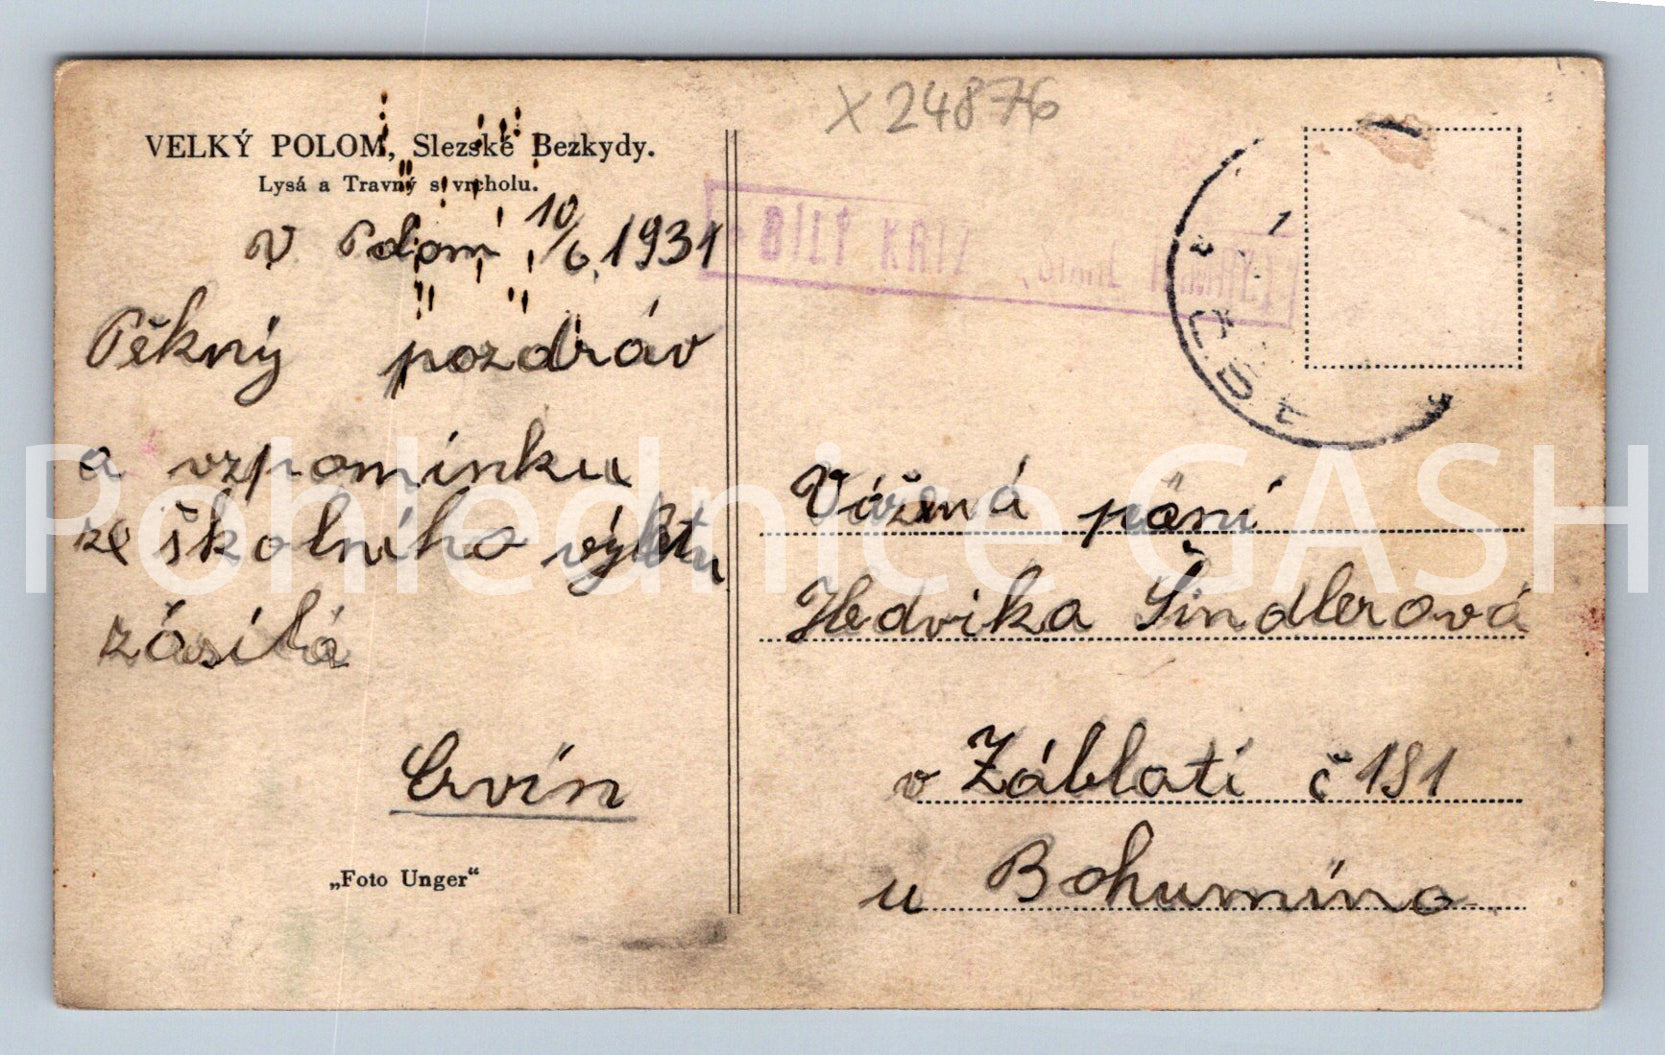 X 24876
VELKÝ POLOM, Slezské Bezkydy.
Lysá a Travný s vrcholu.
V Polomi 10/6. 1931
Pěkný pozdráv
a vzpomínku
ze školního výletu
zásílá
Ervín
„Foto Unger“
BÍLÝ KŘÍŽ
Vážená pání
Hedvika Šindlerová
v Záblatí č 181
u Bohumína
Pohlednice GASH